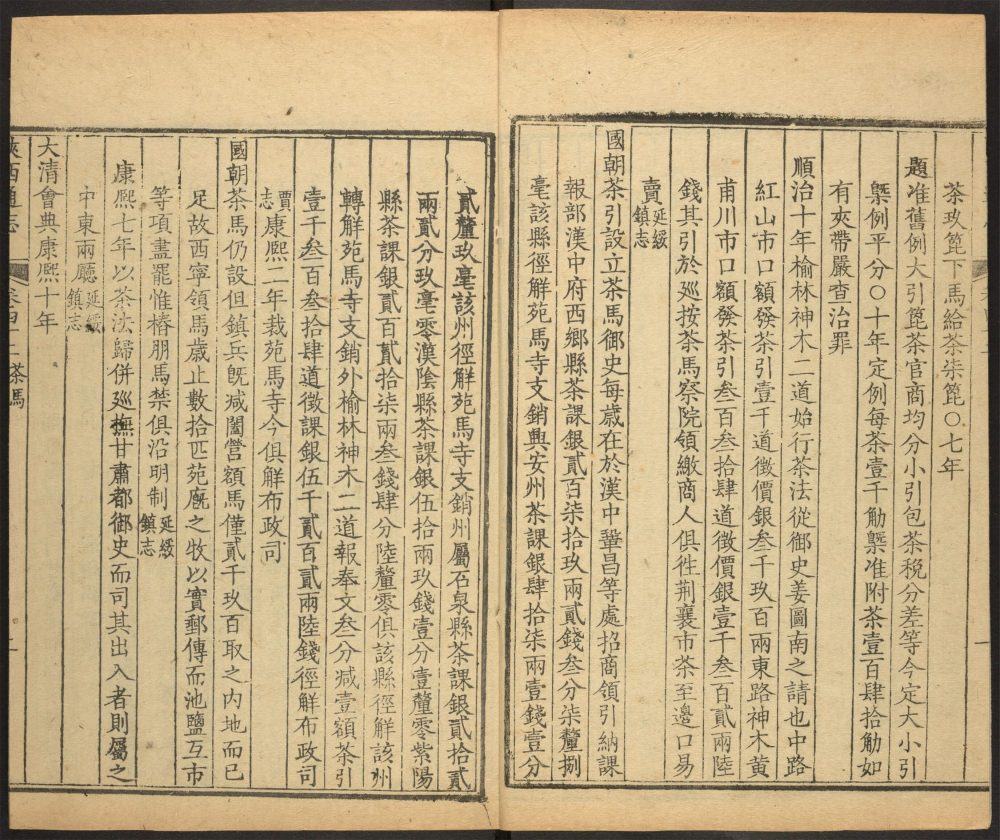 茶玖篦下馬給茶柒篦〇七年
題准舊例大引篦茶官商均分小引包茶稅分差等今定大小引
槩例平分〇十年定例每茶壹千觔槩准附茶壹百肆拾觔如
有夾帶嚴查治罪
順治十年榆林神木二道始行茶法從御史姜圖南之請也中路
紅山市口額發茶引壹千道徵價銀叁千玖百兩東路神木黃
甫川市口額發茶引叁百叁拾肆道徵價銀壹千叁百貳兩陸
錢其引於廵按茶馬察院領繳商人俱徃荆襄市茶至邊口易
賣延綏鎮志
國朝茶引設立茶馬御史每歲在於漢中鞏昌等處招商領引納課
報部漢中府西鄉縣茶課銀貳百柒拾玖兩貳錢叁分柒釐捌
毫該縣徑解苑馬寺支銷興安州茶課銀肆拾柒兩壹錢壹分
貳釐玖毫該州徑解苑馬寺支銷州屬石泉縣茶課銀貳拾貳
兩貳分玖毫零漢陰縣茶課銀伍拾兩玖錢壹分壹釐零紫陽
縣茶課銀貳百貳拾柒兩叁錢肆分陸釐零俱該縣徑解該州
轉解苑馬寺支銷外榆林神木二道報奉文叁分减壹額茶引
壹千叁百叁拾肆道徵課銀伍千貳百貳兩陸錢徑解布政司
賈志康熙二年裁苑馬寺今俱解布政司
國朝茶馬仍設但鎮兵旣减闔營額馬僅貳千玖百取之内地而已
足故西寧領馬歲止數拾匹苑廐之牧以實郵傳而池鹽互市
等項盡罷惟樁朋馬禁俱沿明制延綏鎮志
康熙七年以茶法歸併廵撫甘肅都御史而司其出入者則屬之
中東兩廳延綏鎮志
大清會典康熙十年
陜西通志 卷四十二茶馬